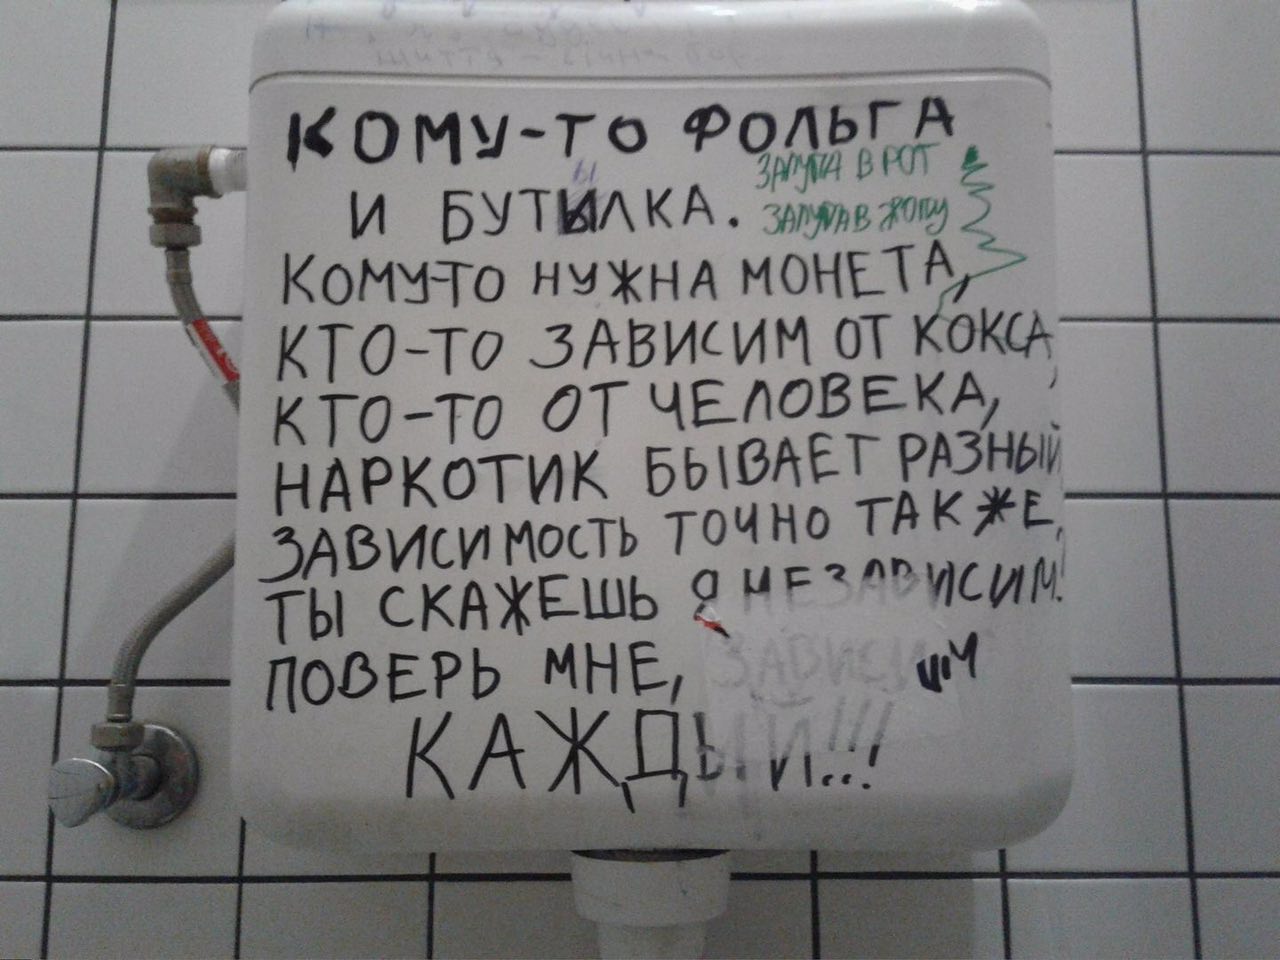 КОМУ-ТО ФОЛЬГА
И БУТЫЛКА.
ЗАЛУПА В РОТ
ЗАЛУПА В ЖОПУ
КОМУ-ТО НУЖНА МОНЕТА,
КТО-ТО ЗАВИСИМ ОТ КОКСА,
КТО-ТО ОТ ЧЕЛОВЕКА,
НАРКОТИК БЫВАЕТ РАЗНЫЙ
ЗАВИСИМОСТЬ ТОЧНО ТАК ЖЕ,
ТЫ СКАЖЕШЬ Я НЕЗАВИСИМ!
ПОВЕРЬ МНЕ, ЗАВИСИМ
КАЖДЫЙ!!!